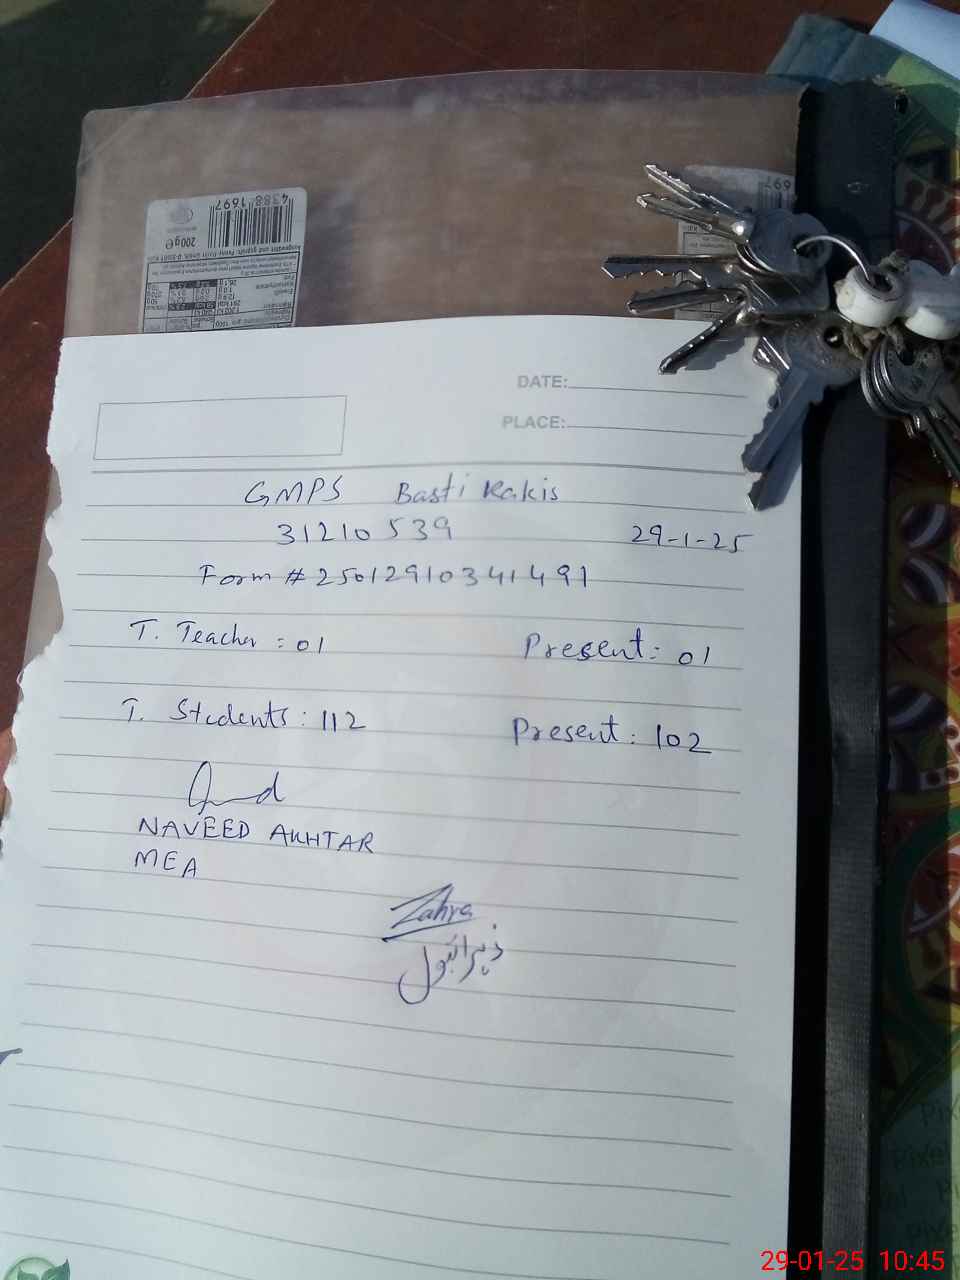 4388 1697
200g℮
697
DATE:
PLACE:
GMPS Basti Rakis
31210539 29-1-25
Form # 25012910341491
T. Teacher : 01 Present : 01
T. Students : 112 Present : 102
NAVEED AKHTAR
MEA
Zahra
29-01-25 10:45